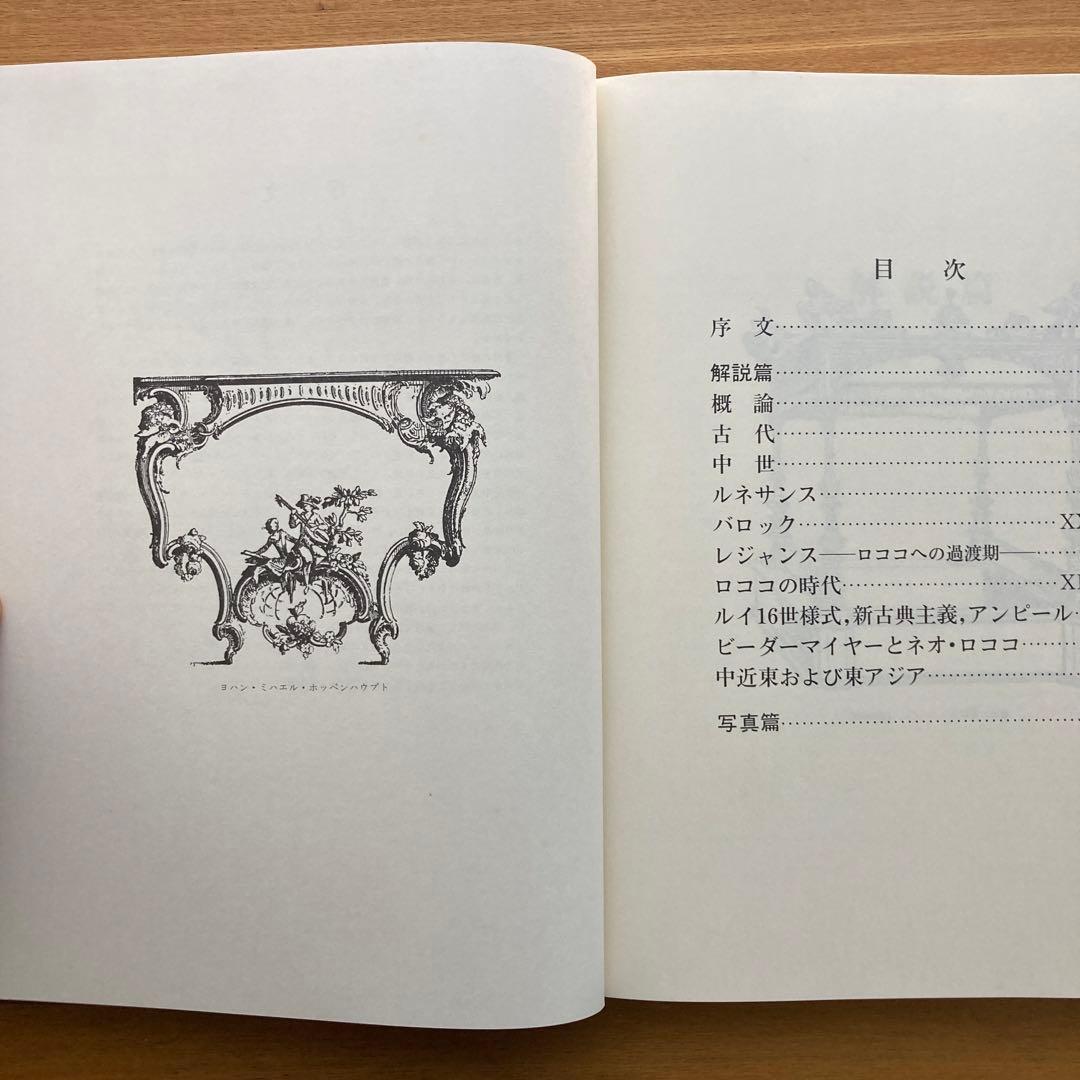 ヨハン・ミハエル・ホッペンハウプト
目 次
序 文……………………
解説篇……………………
概 論……………………
古 代……………………
中 世……………………
ルネサンス……………………
バロック……………………XX
レジャンス──ロココへの過渡期──……
ロココの時代……………………XL
ルイ16世様式,新古典主義,アンピール…
ビーダーマイヤーとネオ・ロココ…………
中近東および東アジア……………………
写真篇……………………